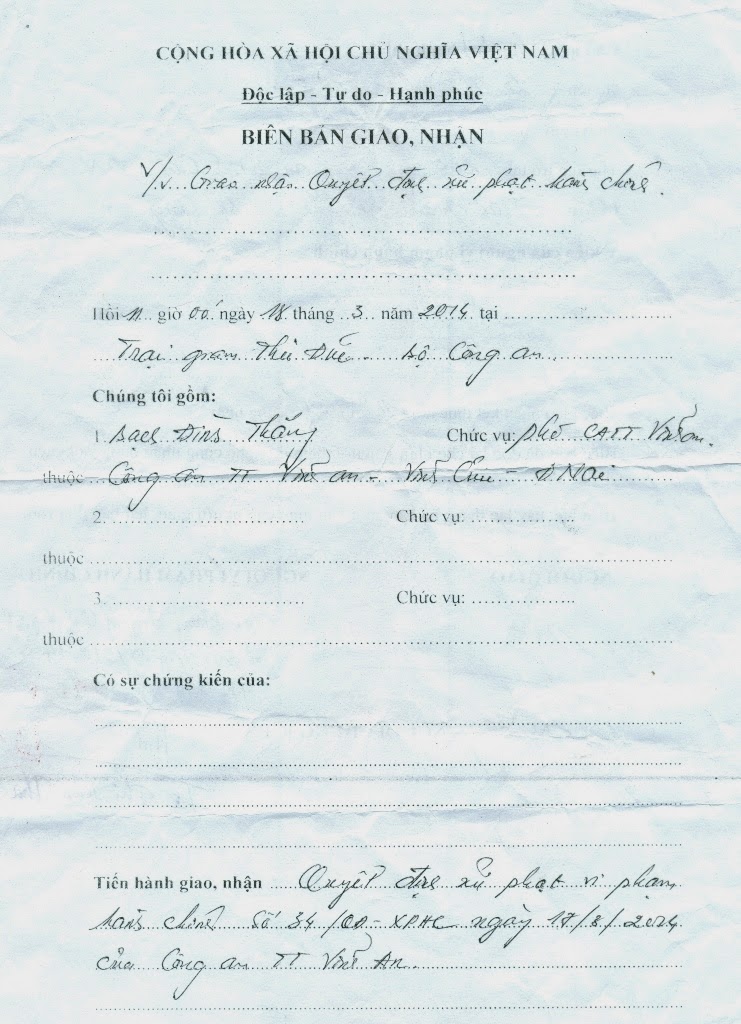 CỘNG HÒA XÃ HỘI CHỦ NGHĨA VIỆT NAM
Độc lập - Tự do - Hạnh phúc
BIÊN BẢN GIAO, NHẬN
V/v Giao nhận Quyết định xử phạt hành chính.
Hồi 11 giờ 00' ngày 18 tháng 3 năm 2014 tại
Trại giam Thủ Đức - Bộ Công an
Chúng tôi gồm:
1. Đình Thắng Chức vụ: phó CATT Vĩnh an.
thuộc Công an TT Vĩnh an - Vĩnh Cửu - Đ Nai
2. Chức vụ:
thuộc
3. Chức vụ:
thuộc
Có sự chứng kiến của:
Tiến hành giao, nhận Quyết định xử phạt vi phạm
hành chính số 34 /QĐ-XPHC ngày 17/3/2014
của Công an TT Vĩnh An.